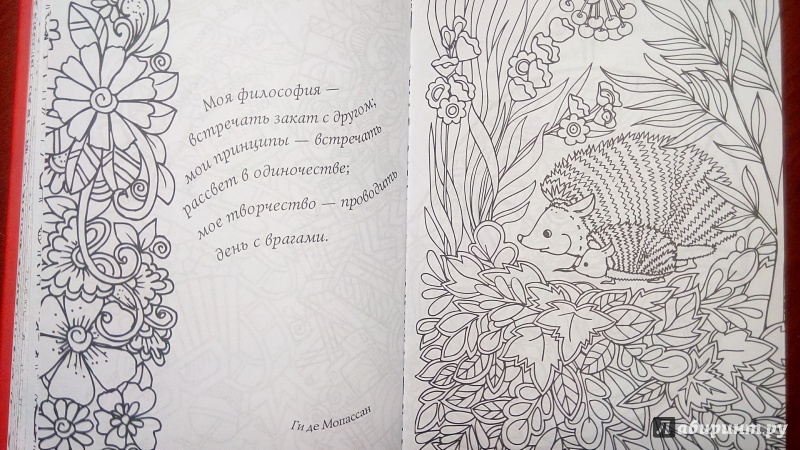 Моя философия —
встречать закат с другом;
мои принципы — встречать
рассвет в одиночестве;
мое творчество — проводить
день с врагами.
Ги де Мопассан
Лабиринт.ру